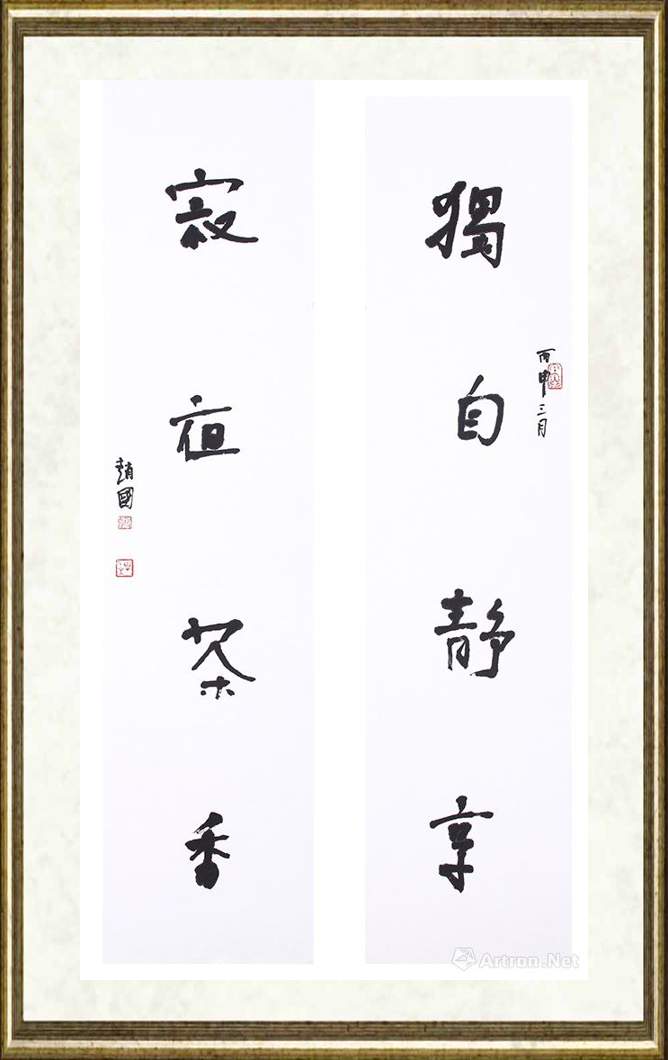 獨自静享
丙申三月
寂夜茶香
趙國
Artron.Net